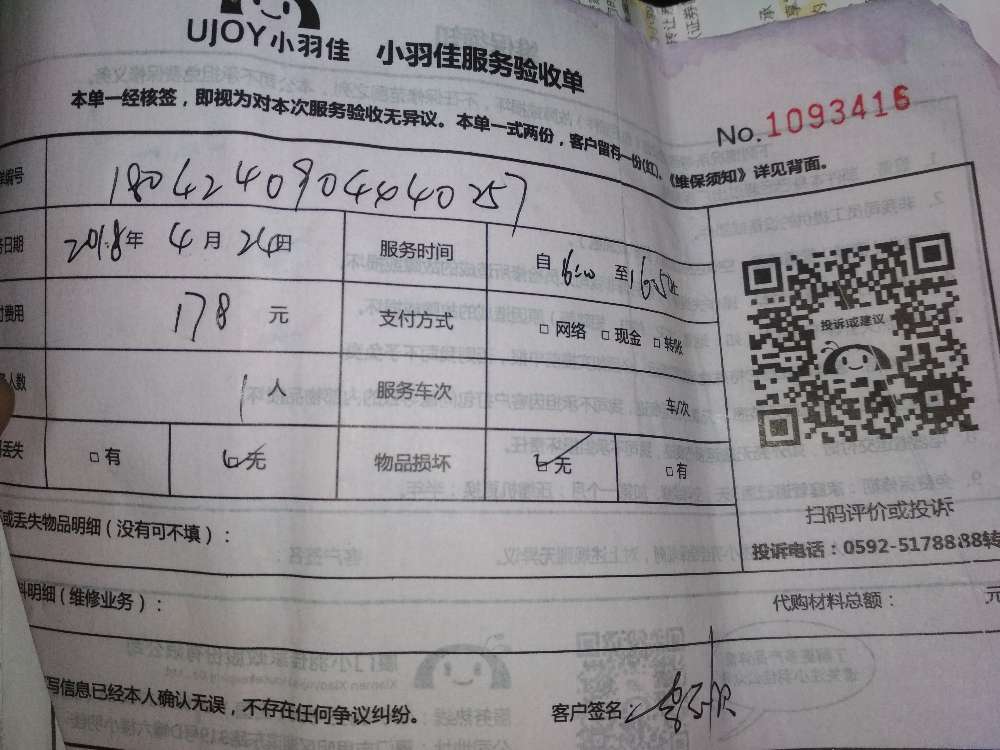 UJOY小羽佳 小羽佳服务验收单
本单一经核签，即视为对本次服务验收无异议。本单一式两份，客户留存一份(红)。《维保须知》详见背面。
No.1093416
单编号 1804240904440257
务日期 2018年 4月 24日 服务时间 自16:00 至16:50止
付费用 178 元 支付方式 □ 网络 □ 现金 □ 转账
人数 1人 服务车次 车/次
丢失 □ 有 □ 无 物品损坏 □ 无 □ 有
投诉或建议
扫码评价或投诉
投诉电话：0592-5178888转
或丢失物品明细（没有可不填）：
料明细（维修业务）：
代购材料总额： 元
写信息已经本人确认无误，不存在任何争议纠纷。
客户签名：